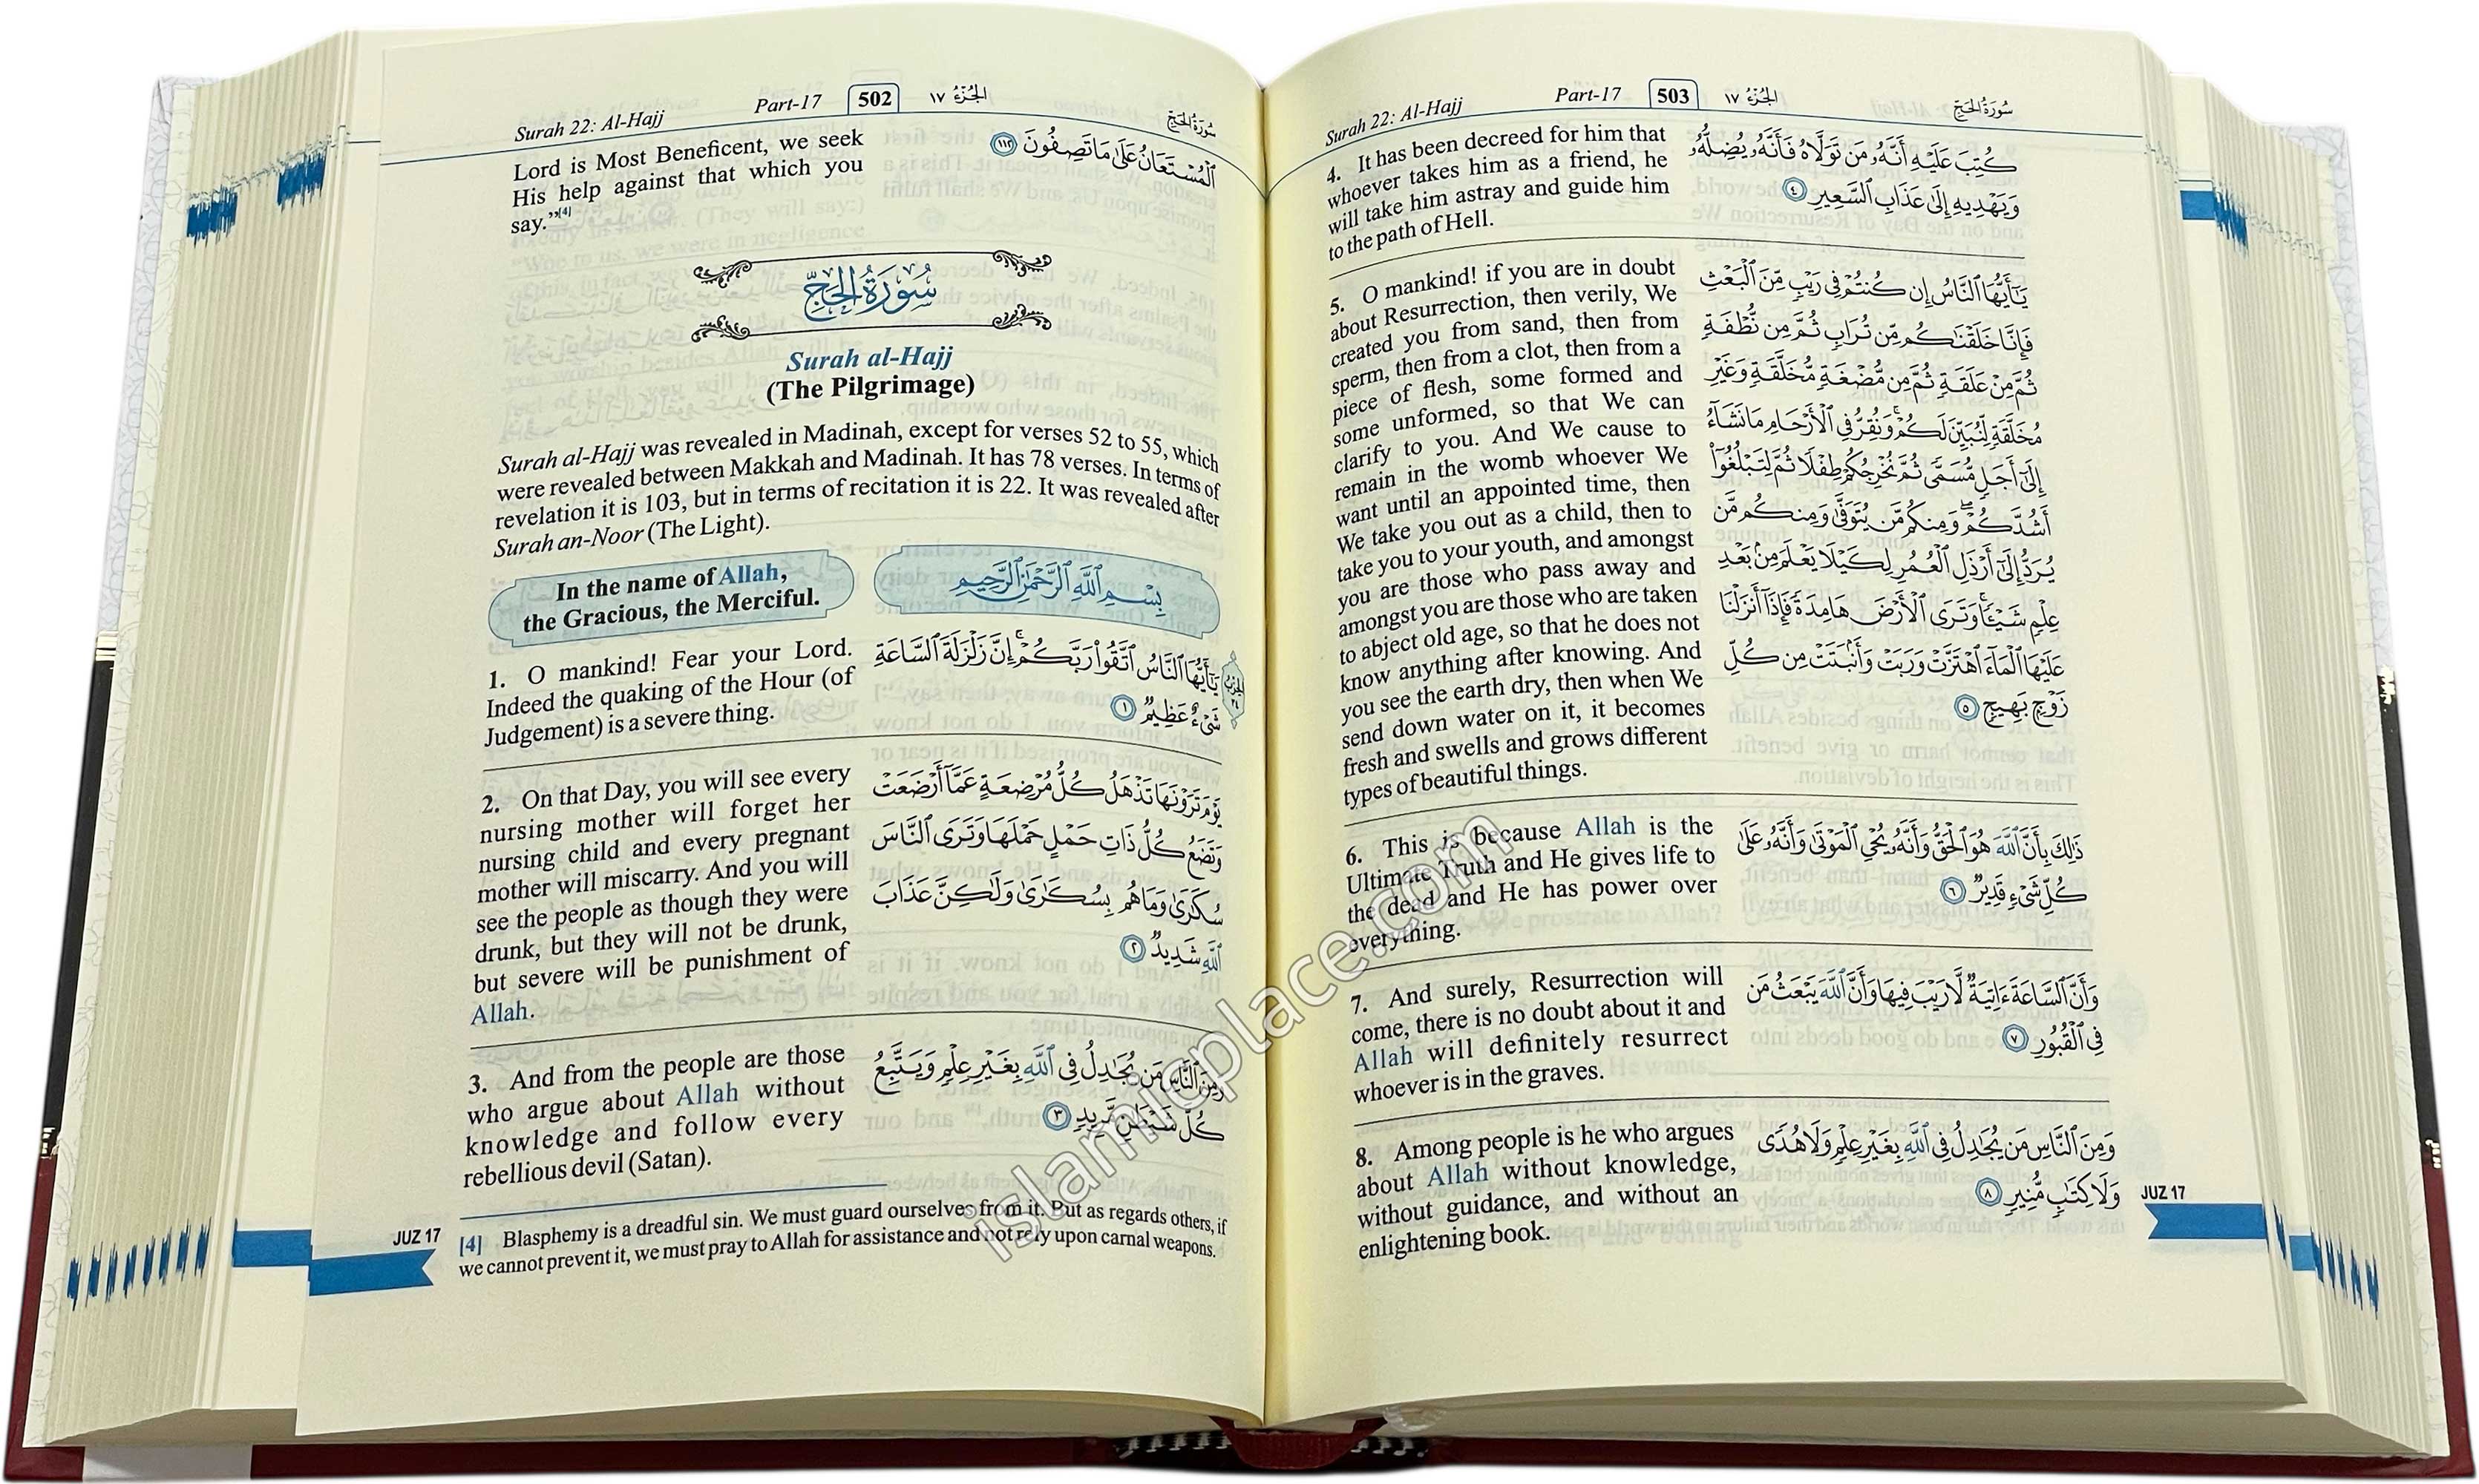 Surah 22: Al-Hajj
Part-17
502
الجُزْءُ ١٧
سُورَةُ الحَجّ
Lord is Most Beneficent, we seek
His help against that which you
say.”[4]
ٱلْمُسْتَعَانُ عَلَىٰ مَا تَصِفُونَ ١١٢
سُورَةُ الحَجِّ
Surah al-Hajj
(The Pilgrimage)
Surah al-Hajj was revealed in Madinah, except for verses 52 to 55, which
were revealed between Makkah and Madinah. It has 78 verses. In terms of
revelation it is 103, but in terms of recitation it is 22. It was revealed after
Surah an-Noor (The Light).
In the name of Allah,
the Gracious, the Merciful.
بِسْمِ ٱللَّهِ ٱلرَّحْمَٰنِ ٱلرَّحِيمِ
1. O mankind! Fear your Lord.
Indeed the quaking of the Hour (of
Judgement) is a severe thing.
يَٰٓأَيُّهَا ٱلنَّاسُ ٱتَّقُوا۟ رَبَّكُمْ ۚ إِنَّ زَلْزَلَةَ ٱلسَّاعَةِ
شَىْءٌ عَظِيمٌ ١
2. On that Day, you will see every
nursing mother will forget her
nursing child and every pregnant
mother will miscarry. And you will
see the people as though they were
drunk, but they will not be drunk,
but severe will be punishment of
Allah.
يَوْمَ تَرَوْنَهَا تَذْهَلُ كُلُّ مُرْضِعَةٍ عَمَّآ أَرْضَعَتْ
وَتَضَعُ كُلُّ ذَاتِ حَمْلٍ حَمْلَهَا وَتَرَى ٱلنَّاسَ
سُكَٰرَىٰ وَمَا هُم بِسُكَٰرَىٰ وَلَٰكِنَّ عَذَابَ
ٱللَّهِ شَدِيدٌ ٢
3. And from the people are those
who argue about Allah without
knowledge and follow every
rebellious devil (Satan).
وَمِنَ ٱلنَّاسِ مَن يُجَٰدِلُ فِى ٱللَّهِ بِغَيْرِ عِلْمٍ وَيَتَّبِعُ
كُلَّ شَيْطَٰنٍ مَّرِيدٍ ٣
[4] Blasphemy is a dreadful sin. We must guard ourselves from it. But as regards others, if
we cannot prevent it, we must pray to Allah for assistance and not rely upon carnal weapons.
JUZ 17
Surah 22: Al-Hajj
Part-17
503
الجُزْءُ ١٧
سُورَةُ الحَجّ
4. It has been decreed for him that
whoever takes him as a friend, he
will take him astray and guide him
to the path of Hell.
كُتِبَ عَلَيْهِ أَنَّهُۥ مَن تَوَلَّاهُ فَأَنَّهُۥ يُضِلُّهُۥ
وَيَهْدِيهِ إِلَىٰ عَذَابِ ٱلسَّعِيرِ ٤
5. O mankind! if you are in doubt
about Resurrection, then verily, We
created you from sand, then from
sperm, then from a clot, then from a
piece of flesh, some formed and
some unformed, so that We can
clarify to you. And We cause to
remain in the womb whoever We
want until an appointed time, then
We take you out as a child, then to
take you to your youth, and amongst
you are those who pass away and
amongst you are those who are taken
to abject old age, so that he does not
know anything after knowing. And
you see the earth dry, then when We
send down water on it, it becomes
fresh and swells and grows different
types of beautiful things.
يَٰٓأَيُّهَا ٱلنَّاسُ إِن كُنتُمْ فِى رَيْبٍ مِّنَ ٱلْبَعْثِ
فَإِنَّا خَلَقْنَٰكُم مِّن تُرَابٍ ثُمَّ مِن نُّطْفَةٍ
ثُمَّ مِنْ عَلَقَةٍ ثُمَّ مِن مُّضْغَةٍ مُّخَلَّقَةٍ وَغَيْرِ
مُخَلَّقَةٍ لِّنُبَيِّنَ لَكُمْ ۚ وَنُقِرُّ فِى ٱلْأَرْحَامِ مَا نَشَآءُ
إِلَىٰٓ أَجَلٍ مُّسَمًّى ثُمَّ نُخْرِجُكُمْ طِفْلًا ثُمَّ لِتَبْلُغُوٓا۟
أَشُدَّكُمْ ۖ وَمِنكُم مَّن يُتَوَفَّىٰ وَمِنكُم مَّن
يُرَدُّ إِلَىٰٓ أَرْذَلِ ٱلْعُمُرِ لِكَيْلَا يَعْلَمَ مِنۢ بَعْدِ
عِلْمٍ شَيْـًٔا ۚ وَتَرَى ٱلْأَرْضَ هَامِدَةً فَإِذَآ أَنزَلْنَا
عَلَيْهَا ٱلْمَآءَ ٱهْتَزَّتْ وَرَبَتْ وَأَنۢبَتَتْ مِن كُلِّ
زَوْجٍۭ بَهِيجٍ ٥
6. This is because Allah is the
Ultimate Truth and He gives life to
the dead and He has power over
everything.
ذَٰلِكَ بِأَنَّ ٱللَّهَ هُوَ ٱلْحَقُّ وَأَنَّهُۥ يُحْىِ ٱلْمَوْتَىٰ وَأَنَّهُۥ عَلَىٰ
كُلِّ شَىْءٍ قَدِيرٌ ٦
7. And surely, Resurrection will
come, there is no doubt about it and
Allah will definitely resurrect
whoever is in the graves.
وَأَنَّ ٱلسَّاعَةَ ءَاتِيَةٌ لَّا رَيْبَ فِيهَا وَأَنَّ ٱللَّهَ يَبْعَثُ مَن
فِى ٱلْقُبُورِ ٧
8. Among people is he who argues
about Allah without knowledge,
without guidance, and without an
enlightening book.
وَمِنَ ٱلنَّاسِ مَن يُجَٰدِلُ فِى ٱللَّهِ بِغَيْرِ عِلْمٍ وَلَا هُدًى
وَلَا كِتَٰبٍ مُّنِيرٍ ٨
JUZ 17
islamicplace.com